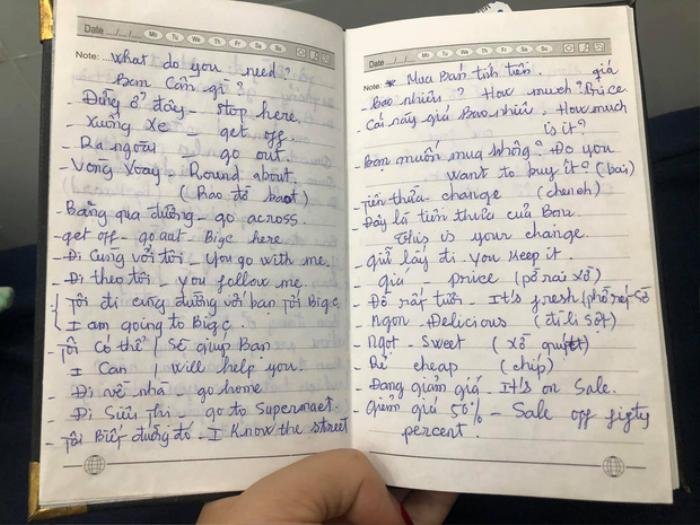 Date ___/___/___ Mo Tu We Th Fr Sa Su
Note: What do you need?
Bạn Cần gì?
- Đừng ở đây - Stop here.
- Xuống Xe - get off.
- Ra ngoài - go out.
- Vòng Xoay - Round about.
(Rao đờ baot)
- Băng qua đường - go across.
- get off - go out - Bigc here
- Đi Cùng với tôi - You go with me.
- Đi theo tôi - you follow me.
Tôi đi cùng đường với bạn Tới Bigc
I am going to Bigc.
- Tôi Có thể / Sẽ giúp Bạn
I Can will help you.
- Đi về nhà - go home
- Đi Siêu Thị - go to Supermaet.
- Tôi Biết đường đó - I Know the street
Date ___/___/___ Mo Tu We Th Fr Sa Su
Note: * Mua Bán tính tiền. giá
- Bao nhiêu? How much? Price
- Cái này giá Bao nhiêu. How much
is it?
- Bạn muốn mua không? Do you
want to buy it? (bai)
- Tiền thừa change (chench)
- Đây là tiền thừa của Bạn.
This is your change.
- giữ lấy đi. you Keep it.
- giá price
- Đồ rất tươi - It's fresh
- Ngon - Delicious (đi li sớt)
- Ngọt - Sweet
- Rẻ cheap (chíp)
- Đang giảm giá - It's on Sale.
- Giảm giá 50% - Sale off figty
percent.